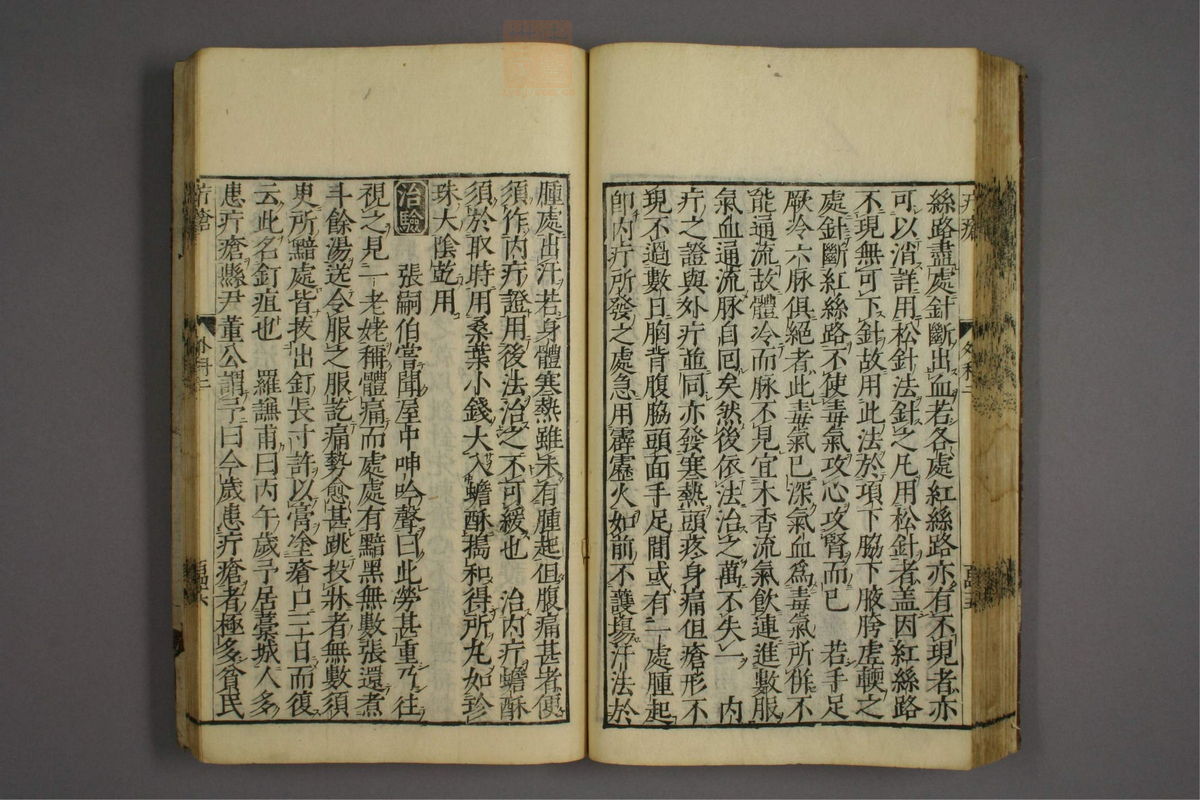 疔瘡
外科二
絲路盡處針斷出血若各處紅絲路亦有不現者亦
可以消詳用松針法針之凡用松針者蓋因紅絲路
不現無可下針故用此法於項下脇下腋胯虛軟之
處針斷紅絲路不使毒氣攻心攻腎而已 若手足
厥冷六脉俱絕者此毒氣已深氣血爲毒氣所併不
能通流故體冷而脉不見宜木香流氣飲連進數服
氣血通流脉自回矣然後依法治之萬不失一 內
疔之證與外疔並同亦發寒熱頭疼身痛但瘡形不
現不過數日胸背腹脇頭面手足間或有一處腫起
即內疔所發之處急用霹靂火如前不護場汗法於
腫處出汗若身體寒熱雖未有腫起但腹痛甚者便
須作內疔證用後法治之不可緩也 治內疔蟾酥
須於取時用桑葉小錢大入蟾酥搗和得所丸如珍
珠大陰乾用
治驗 張嗣伯嘗聞屋中呻吟聲曰此勞甚重乃往
視之見一老姥稱體痛而處處有黯黑無數張還煮
斗餘湯送令服之服訖痛勢愈甚跳投牀者無數須
臾所黯處皆拔出釘長寸許以膏塗瘡口三日而復
云此名釘疽也 羅謙甫曰丙午歲予居藁城人多
患疔瘡縣尹董公謂予曰今歲患疔瘡者極多貧民
疔瘡
外科二